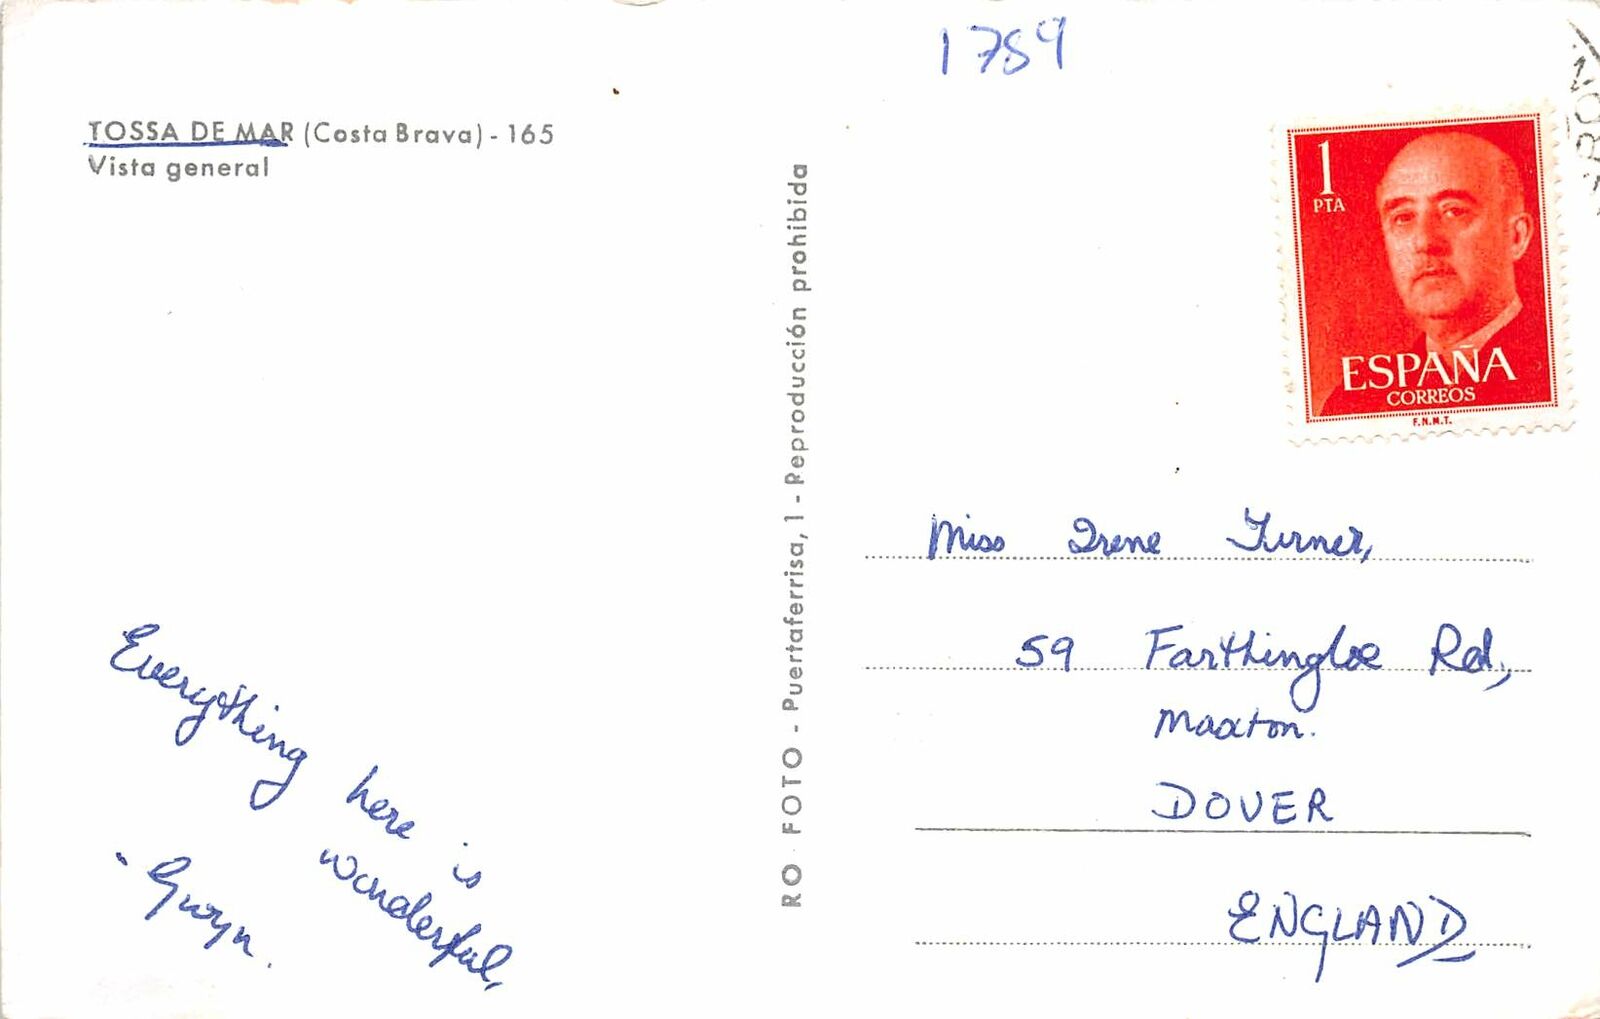 1789
TOSSA DE MAR (Costa Brava) - 165
Vista general
Everything here is
wonderful,
- Gwyn.
RO - FOTO - Puertaferrisa, 1 - Reproducción prohibida
1
PTA
ESPAÑA
CORREOS
F.N.M.T.
Miss Irene Turner,
59 Farthingloe Rd,
Maxton.
DOVER
ENGLAND